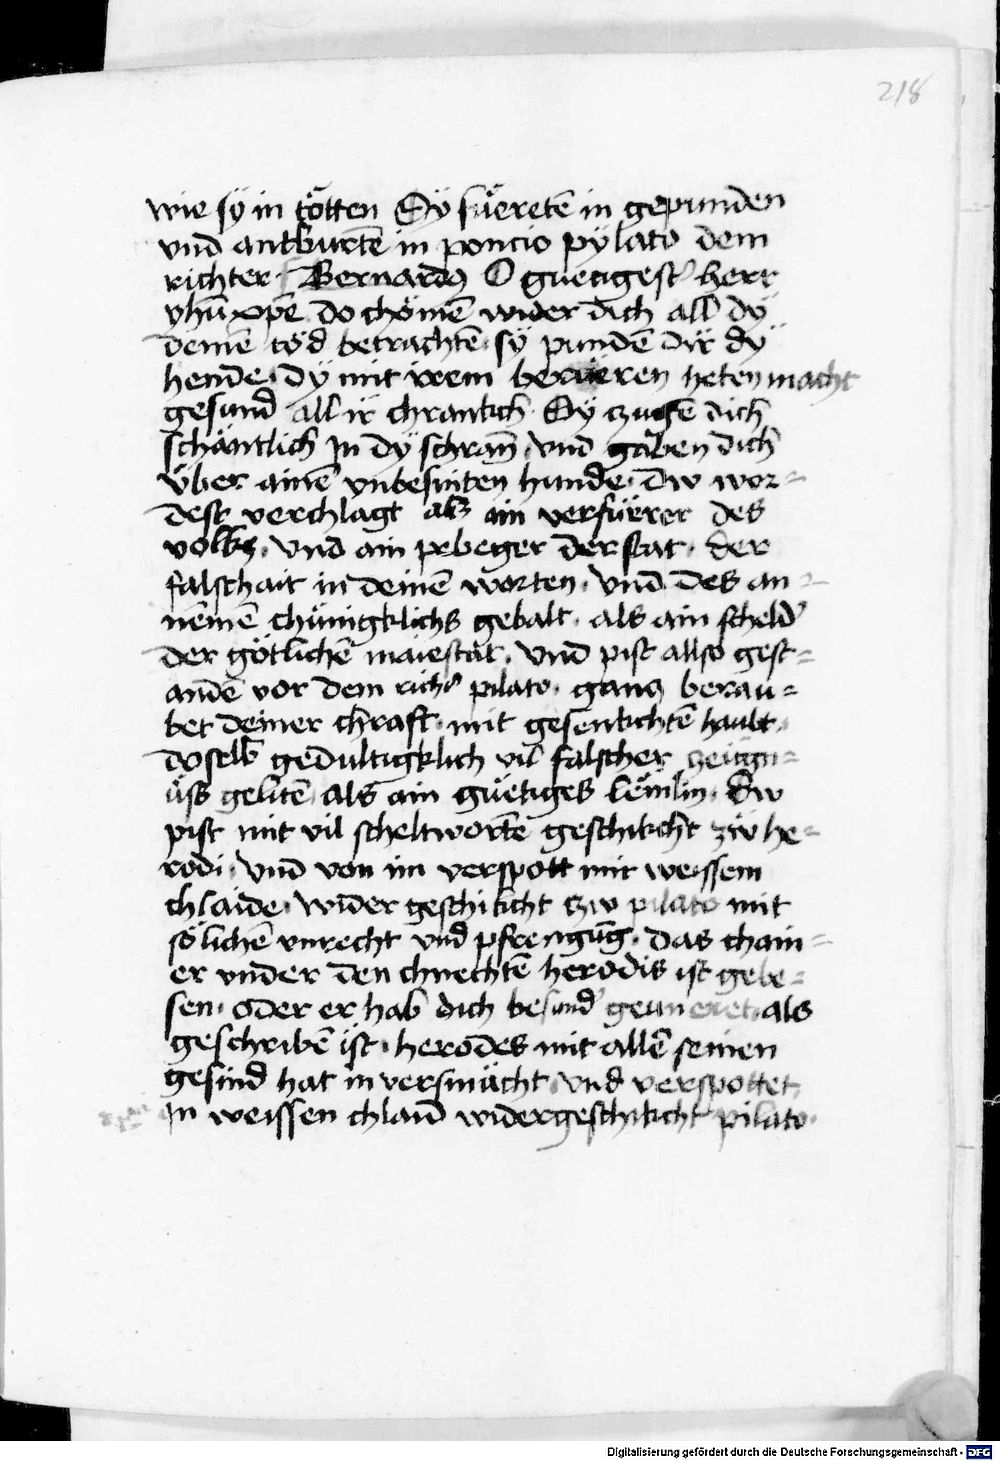 218
wie sÿ in tötten Sÿ fuͤeretē in gepunden
vnd antburtē in poncio pÿlato dem
richter Bernardꝰ O guetigest̕ herr
yhū xpē do chömē wider dich all dÿ
deinē töd betrachtē · sÿ pundē dir dÿ
hende · dÿ mit irem berüeren heten macht
gesund all ir chrankch · Sÿ czugē dich
schäntlich Jn dÿ schrañ · vnd gaben dich
Über ainē vnbesinten hunde · dw wor=
dest verchlagt als ain verfüerer des
volks · vnd ain pebeger der stat · der
falschait in deinē worten · vnd des an=
nēmē chünigklichs gebalt · als ain scheld̕
der götlichē maiestat · vnd pist allso gest=
andē vor dem richt̕ pilato · gancz berau=
bet deiner chraft · mit gesenkchtē haubt ·
doselb gedultigklich vil falscher zeügn=
üss gelitē als ain güetiges lemlin · Dw
pist mit vil scheltwortē geschikcht zw he=
rodi · vnd von im verspott mit weissem
chlaide · wider geschikcht czw pilato mit
sölichē vnrecht vnd pfrengūg · das chain=
er vnder den chnechtē herodis ist gebe=
sen · oder er hab dich besund̕ geuneret · als
geschribē ist · herodes mit allē seinen
gesind hat in versmächt vnd verspottet
Jn weissen chlaid widergeschikcht pilato ·
Digitalisierung gefördert durch die Deutsche Forschungsgemeinschaft - DFG